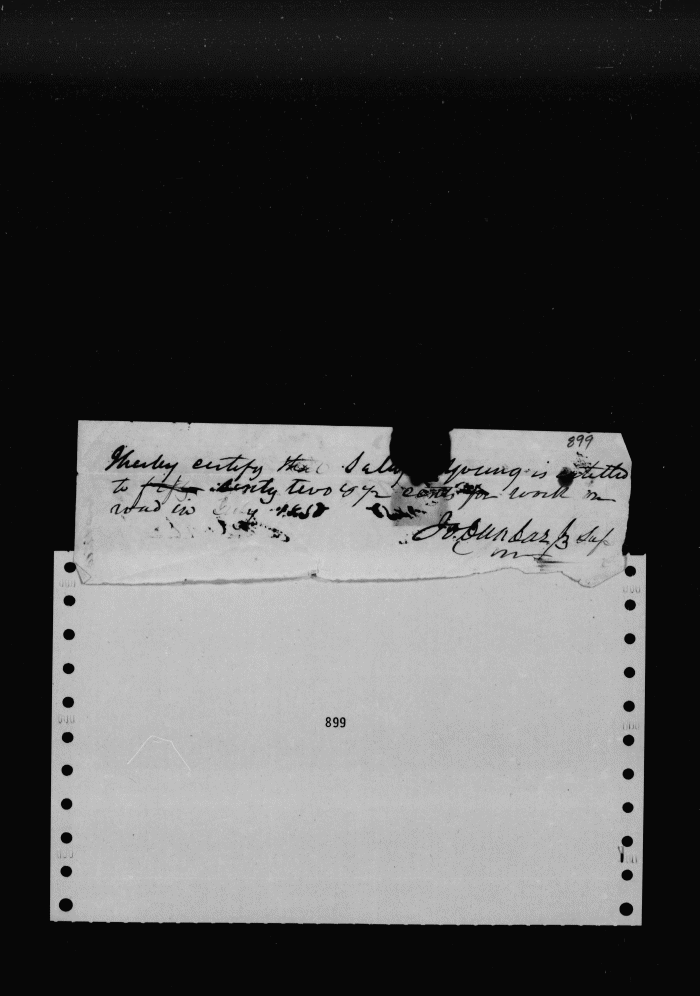 899
I hereby certify that Young is entitled
to sixty two 50/100 cents for work on
road in 1858
Jo. Dunbar Jr Sup
899